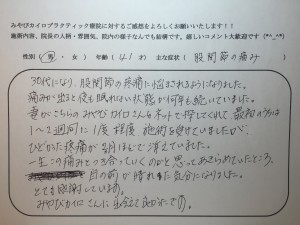 みやびカイロプラクティック療院に対するご感想をよろしくお願いいたします!!
施術内容、院長の人柄・雰囲気、院内の様子なんでも結構です。嬉しいコメント大歓迎です(*^_^*)
性別(男・女) 年齢(41才) 主な症状(股関節の痛み)
30代になり、股関節の疼痛に悩まされるようになりました。
痛みが出ると夜も眠れない状態が何年も続いていました。
妻がこちらのみやびカイロさんをネットで探してくれて、最初のうちは
1~2週間に1度程度施術を受けていましたが、
ひどかった疼痛が3ヶ月ほどで消えていました。
一生この痛みとつき合っていくのかと思ってあきらめていたところ、
目の前が晴れた気分になりました。
とても感謝しています。
みやびカイロさんに出会えて良かったです。